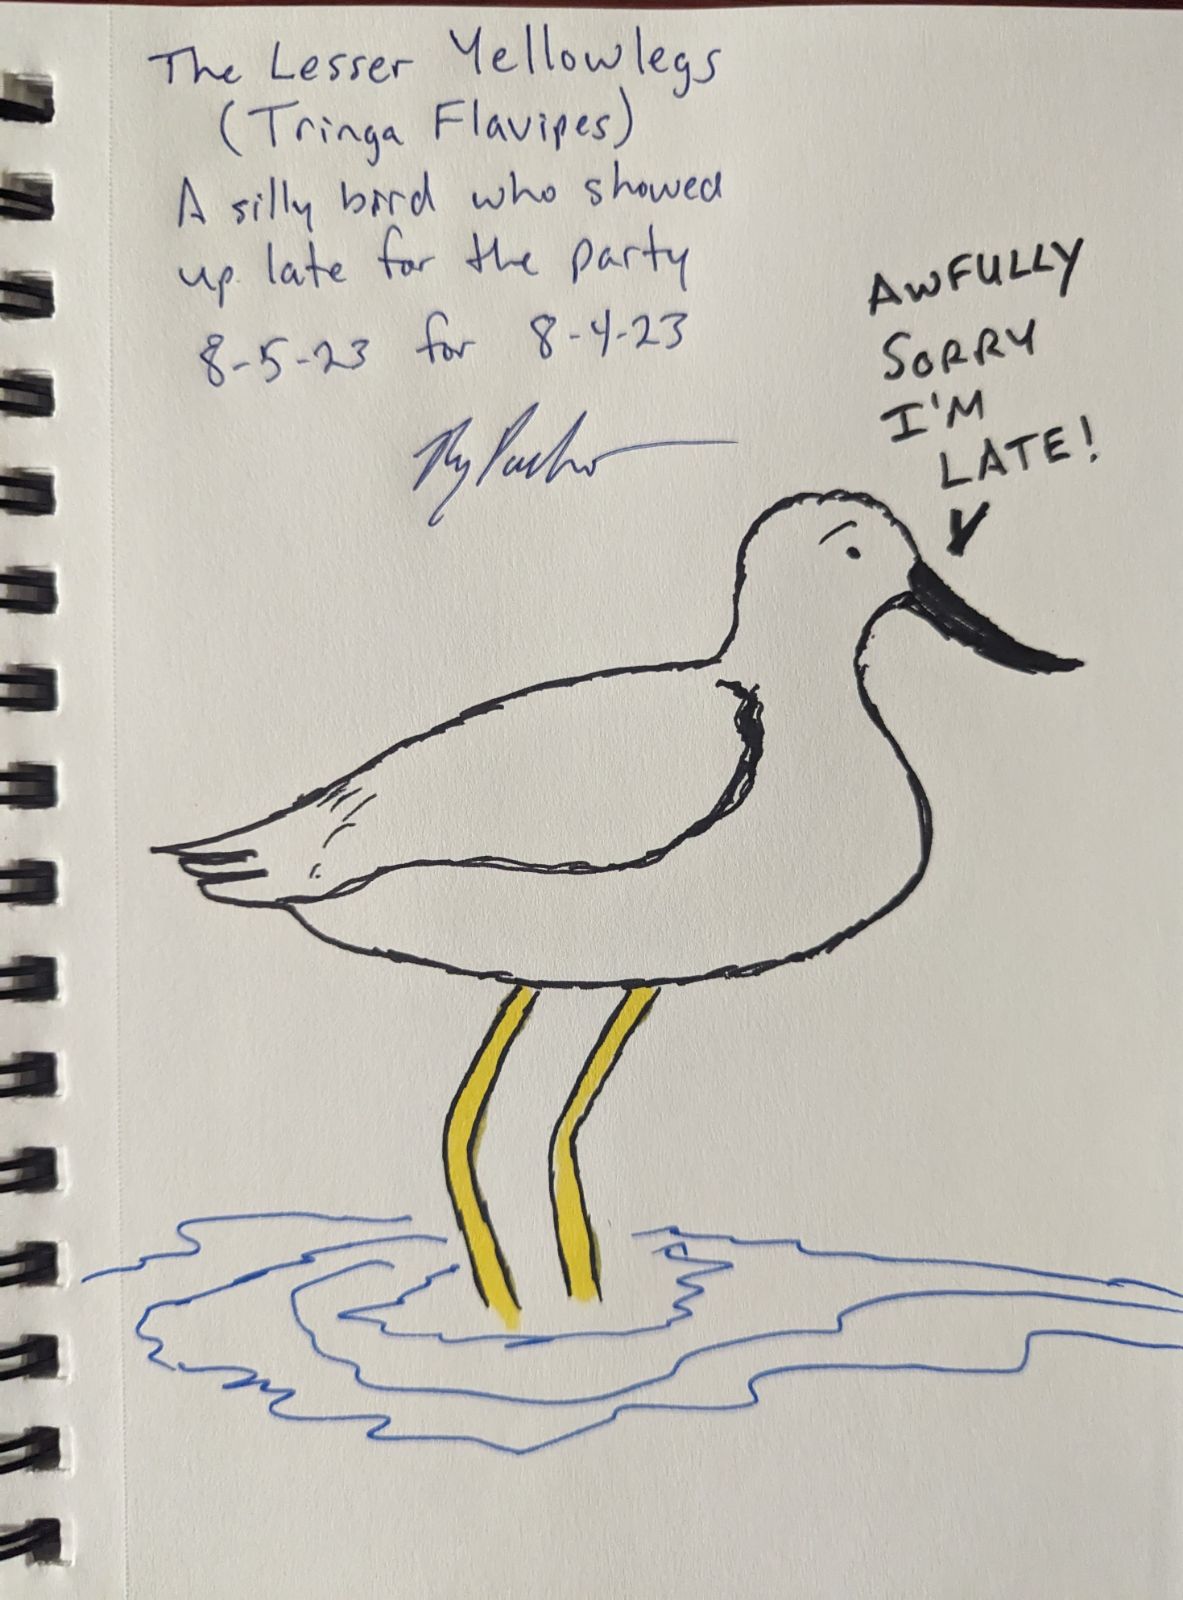 The Lesser Yellowlegs
(Tringa Flavipes)
A silly bird who showed
up late for the party
8-5-23 for 8-4-23
AWFULLY
SORRY
I'M
LATE!